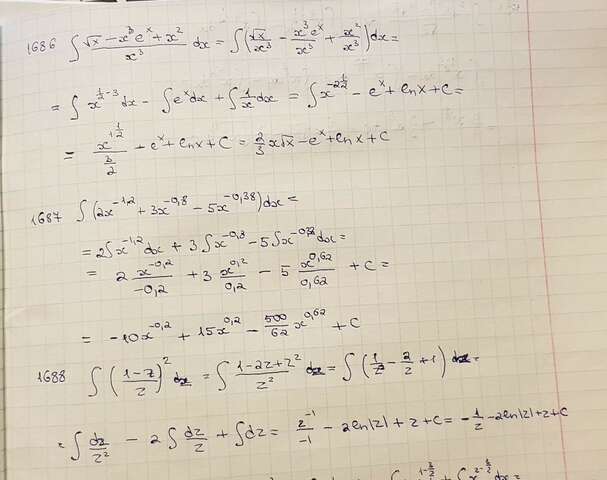 1686 ∫ (√x − x³eˣ + x²)/x³ dx = ∫(√x/x³ − x³eˣ/x³ + x²/x³)dx =
= ∫ x^(1/2−3) dx − ∫eˣdx + ∫ 1/x dx = ∫x^(−2 1/2) − eˣ + lnx + C =
= x^(+1/2)/(3/2) + eˣ + lnx + C = 2/3 x√x − eˣ + lnx + C
1687 ∫(2x^(−1,2) + 3x^(−0,8) − 5x^(−0,38))dx =
= 2∫x^(−1,2)dx + 3∫x^(−0,8) − 5∫x^(−0,38)dx =
= 2 x^(−0,2)/(−0,2) + 3 x^(0,2)/0,2 − 5 x^(0,62)/0,62 + C =
= −10x^(−0,2) + 15x^(0,2) − 500/62 x^(0,62) + C
1688 ∫((1−z)/z)² dz = ∫ (1−2z+z²)/z² dz = ∫(1/z² − 2/z + 1) dz =
= ∫ dz/z² − 2∫ dz/z + ∫dz = z^(−1)/(−1) − 2ln|z| + z + C = −1/z − 2ln|z| + z + C